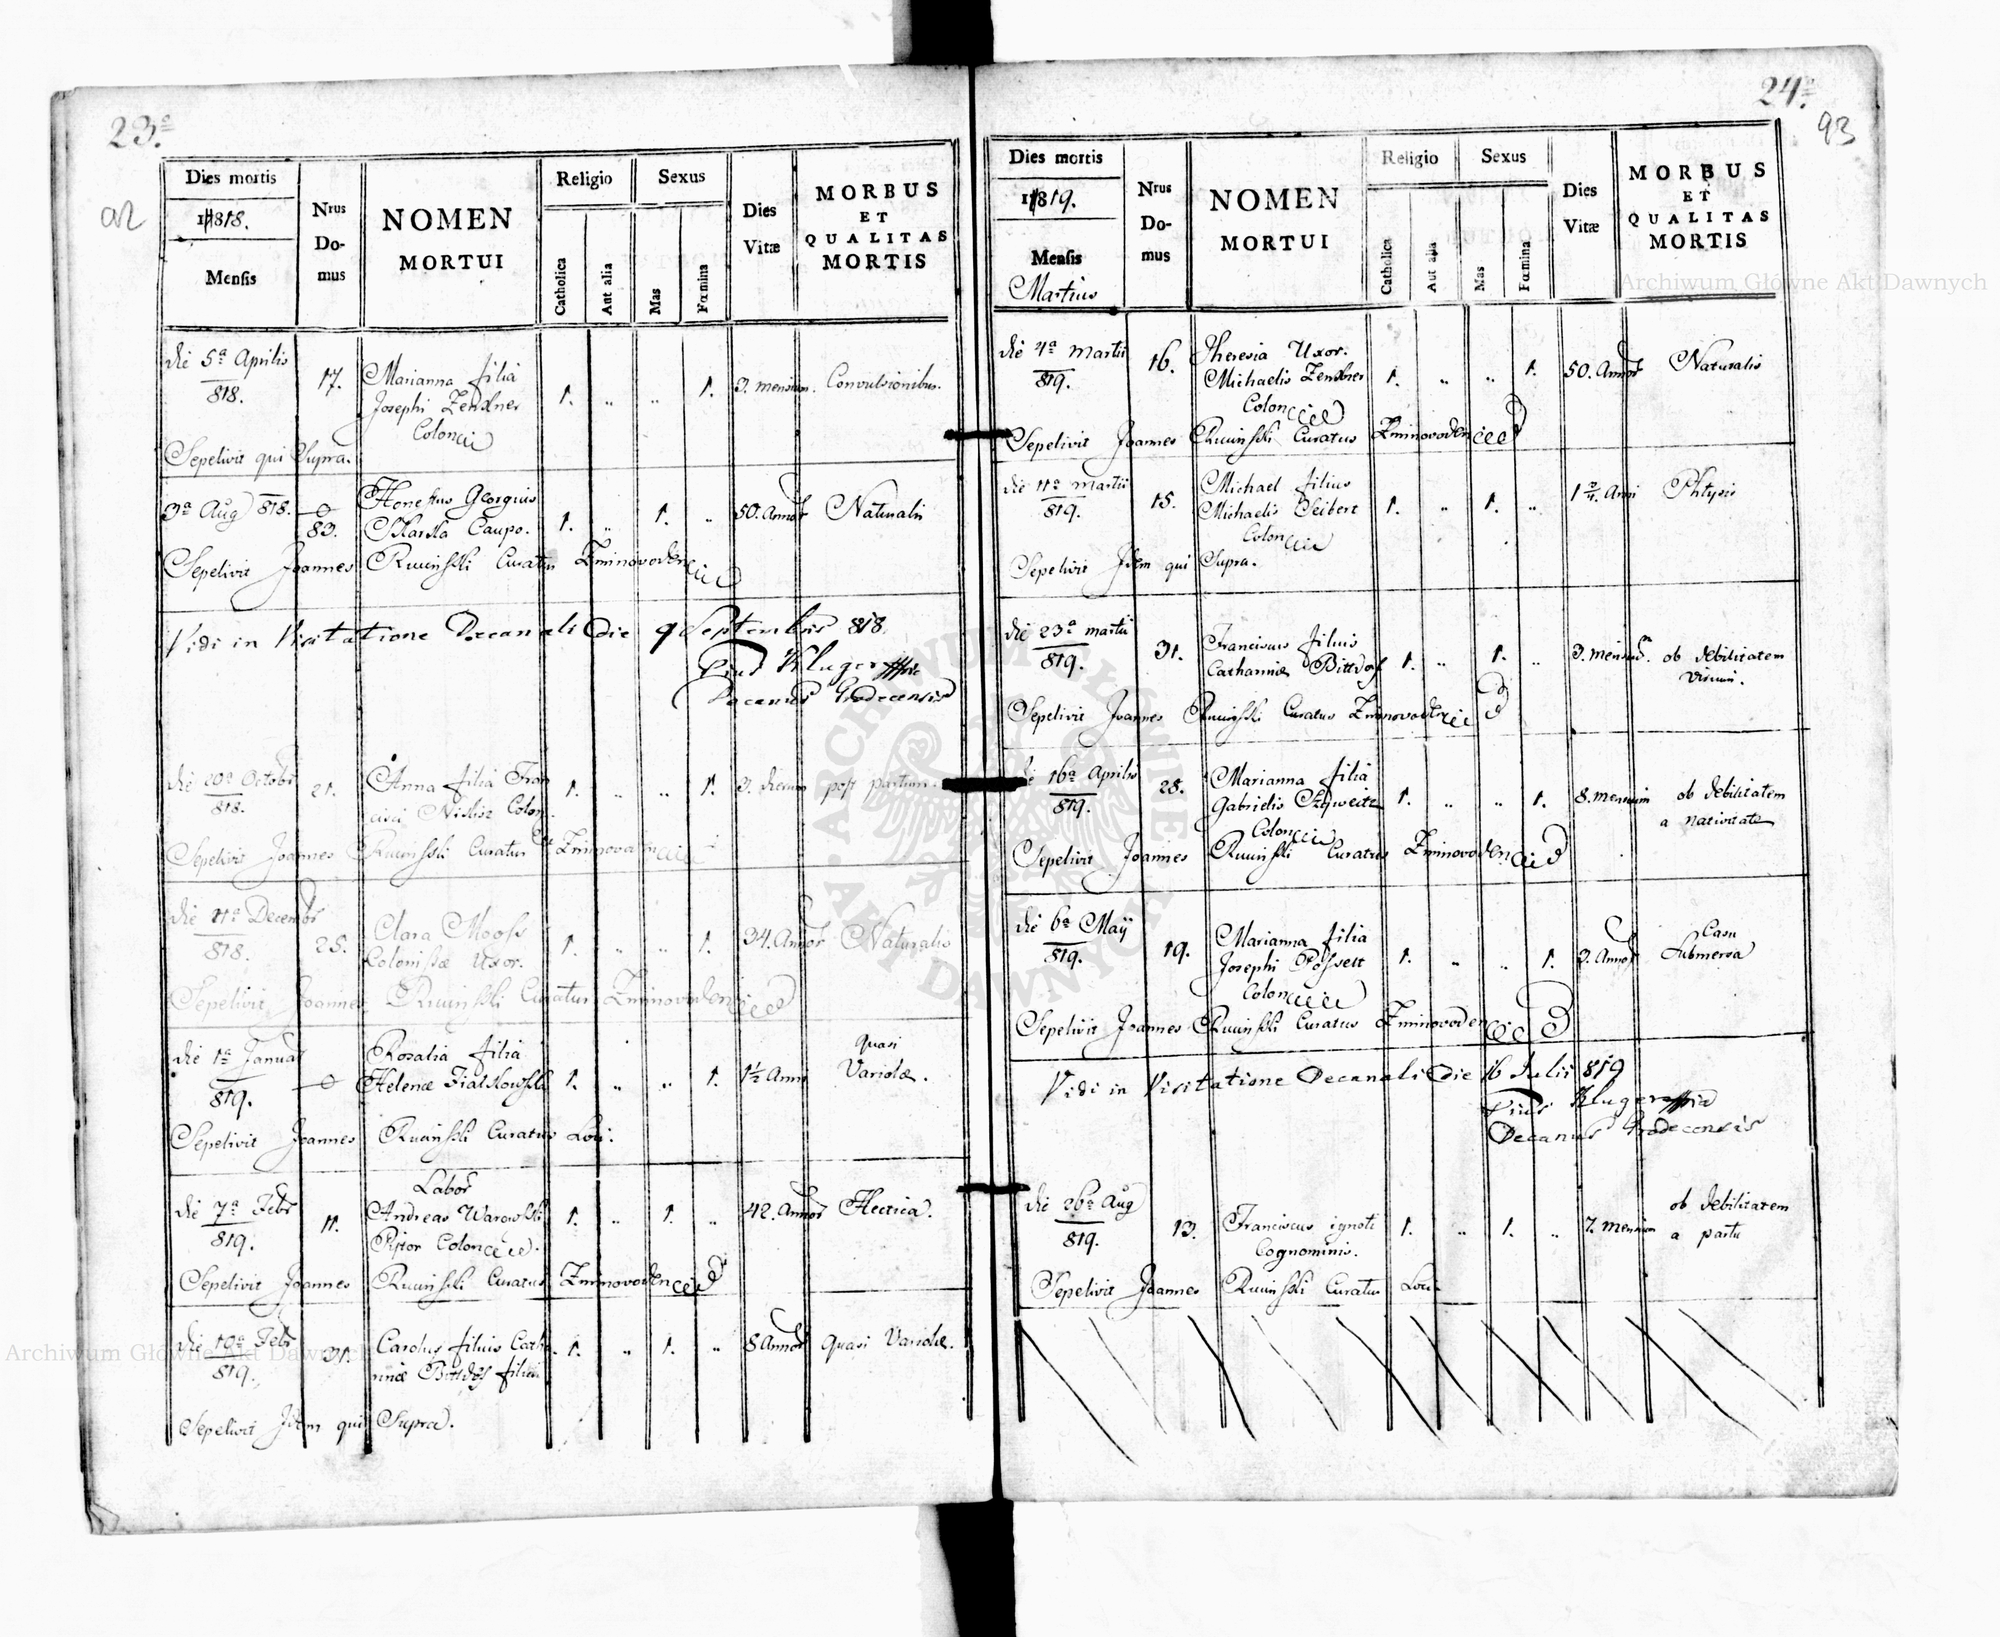 23.a
92
Dies mortis
1818.
Mensis
Nrus
Do-
mus
NOMEN
MORTUI
Religio
Catholica
Aut alia
Sexus
Mas
Fœmina
Dies
Vitæ
MORBUS
ET
QUALITAS
MORTIS
die 5a Aprilis
818.
17.
Marianna filia
Josephi Zendner
Colon
1. „ „ 1.
3. mensium. Convulsionibus.
Sepelivit qui Supra.
3a Aug 818.
83.
Honestus Georgius
Skarka Caupo.
1. „ 1. „
50. Annor Naturalis
Sepelivit Joannes Curatus
Vidi in Visitatione Decanali die 9 Septembris 818.
Pius Kluger
Decanus Grodecensis
die 20a Octobr
818.
21.
Anna filia Fran
cisci Colon.
1. „ „ 1.
3. dierum post partum.
Sepelivit Joannes Curatus
die 11a Decembr
818.
25.
Clara Mooss
Colonistæ Uxor.
1. „ „ 1.
34. Annor Naturalis
Sepelivit Joannes Curatus
die 1a Januar
819.
Rosalia filia
Helenæ
1. „ „ 1.
1½ Anni
quasi
Variolæ.
Sepelivit Joannes Curatus Loci.
die 7a Febr
819.
11.
Labor
Andreas
Pistor Colon
1. „ 1. „
42. Annor Hectica.
Sepelivit Joannes Curatus
die 19a Febr
819.
31.
Carolus filius Catha
rinæ filius
1. „ 1. „
8 Annor quasi Variolæ.
Sepelivit Idem qui Supra.
24.a
93
Dies mortis
1819.
Mensis
Martius
Nrus
Do-
mus
NOMEN
MORTUI
Religio
Catholica
Aut alia
Sexus
Mas
Fœmina
Dies
Vitæ
MORBUS
ET
QUALITAS
MORTIS
die 4a Martii
819.
16.
Theresia Uxor.
Michaelis Zendner
Colon
1. „ „ 1.
50. Annor Naturalis
Sepelivit Joannes Curatus
die 11a Martii
819.
15.
Michael filius
Michaelis Seibert
Colon
1. „ 1. „
1 Anni Phtysis
Sepelivit Idem qui Supra.
die 23a martii
819.
31.
Franciscus filius
Catharinæ Bittdorf
1. „ 1. „
3. mensium. ob debilitatem
virium.
Sepelivit Joannes Curatus
die 16a Aprilis
819.
28.
Marianna filia
Gabrielis
Colon
1. „ „ 1.
8. mensium ob debilitatem
a nativitate
Sepelivit Joannes Curatus
die 6a Maÿ
819.
19.
Marianna filia
Josephi Posselt
Colon
1. „ „ 1.
3. Annor
Casu
Submersa
Sepelivit Joannes Curatus
Vidi in Visitatione Decanali die 16 Julii 819
Pius Kluger
Decanus Grodecensis
die 26a Aug
819.
13.
Franciscus ignoti
Cognominis.
1. „ 1. „
7. mensium
ob debilitatem
a partu
Sepelivit Joannes Curatus Loci
Archiwum Główne Akt Dawnych
Archiwum Główne Akt Dawnych
ARCHIWUM GŁÓWNE AKT DAWNYCH